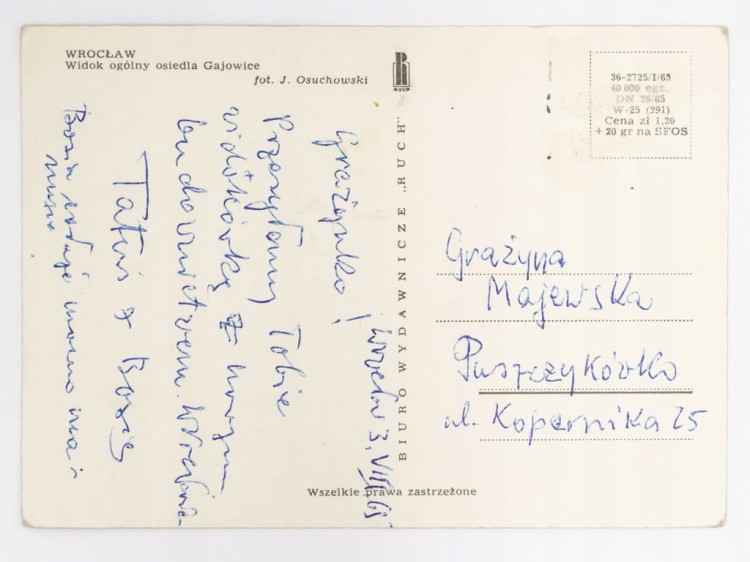 WROCŁAW
Widok ogólny osiedla Gajowice
fot. J. Osuchowski
RUCH
BIURO WYDAWNICZE „RUCH"
36-2725/I/65
40 000 egz.
DN 26/65
W-25 (291)
Cena zł 1,20
+ 20 gr na SFOS
Wrocław 3. VIII 65
Grażynko!
Przesyłamy Tobie
widokówkę z nowym
budownictwem Wrocławia
Tatuś z Bosią
Bosia całuje mocno
Grażyna
Majewska
Puszczykówko
ul. Kopernika 25
Wszelkie prawa zastrzeżone